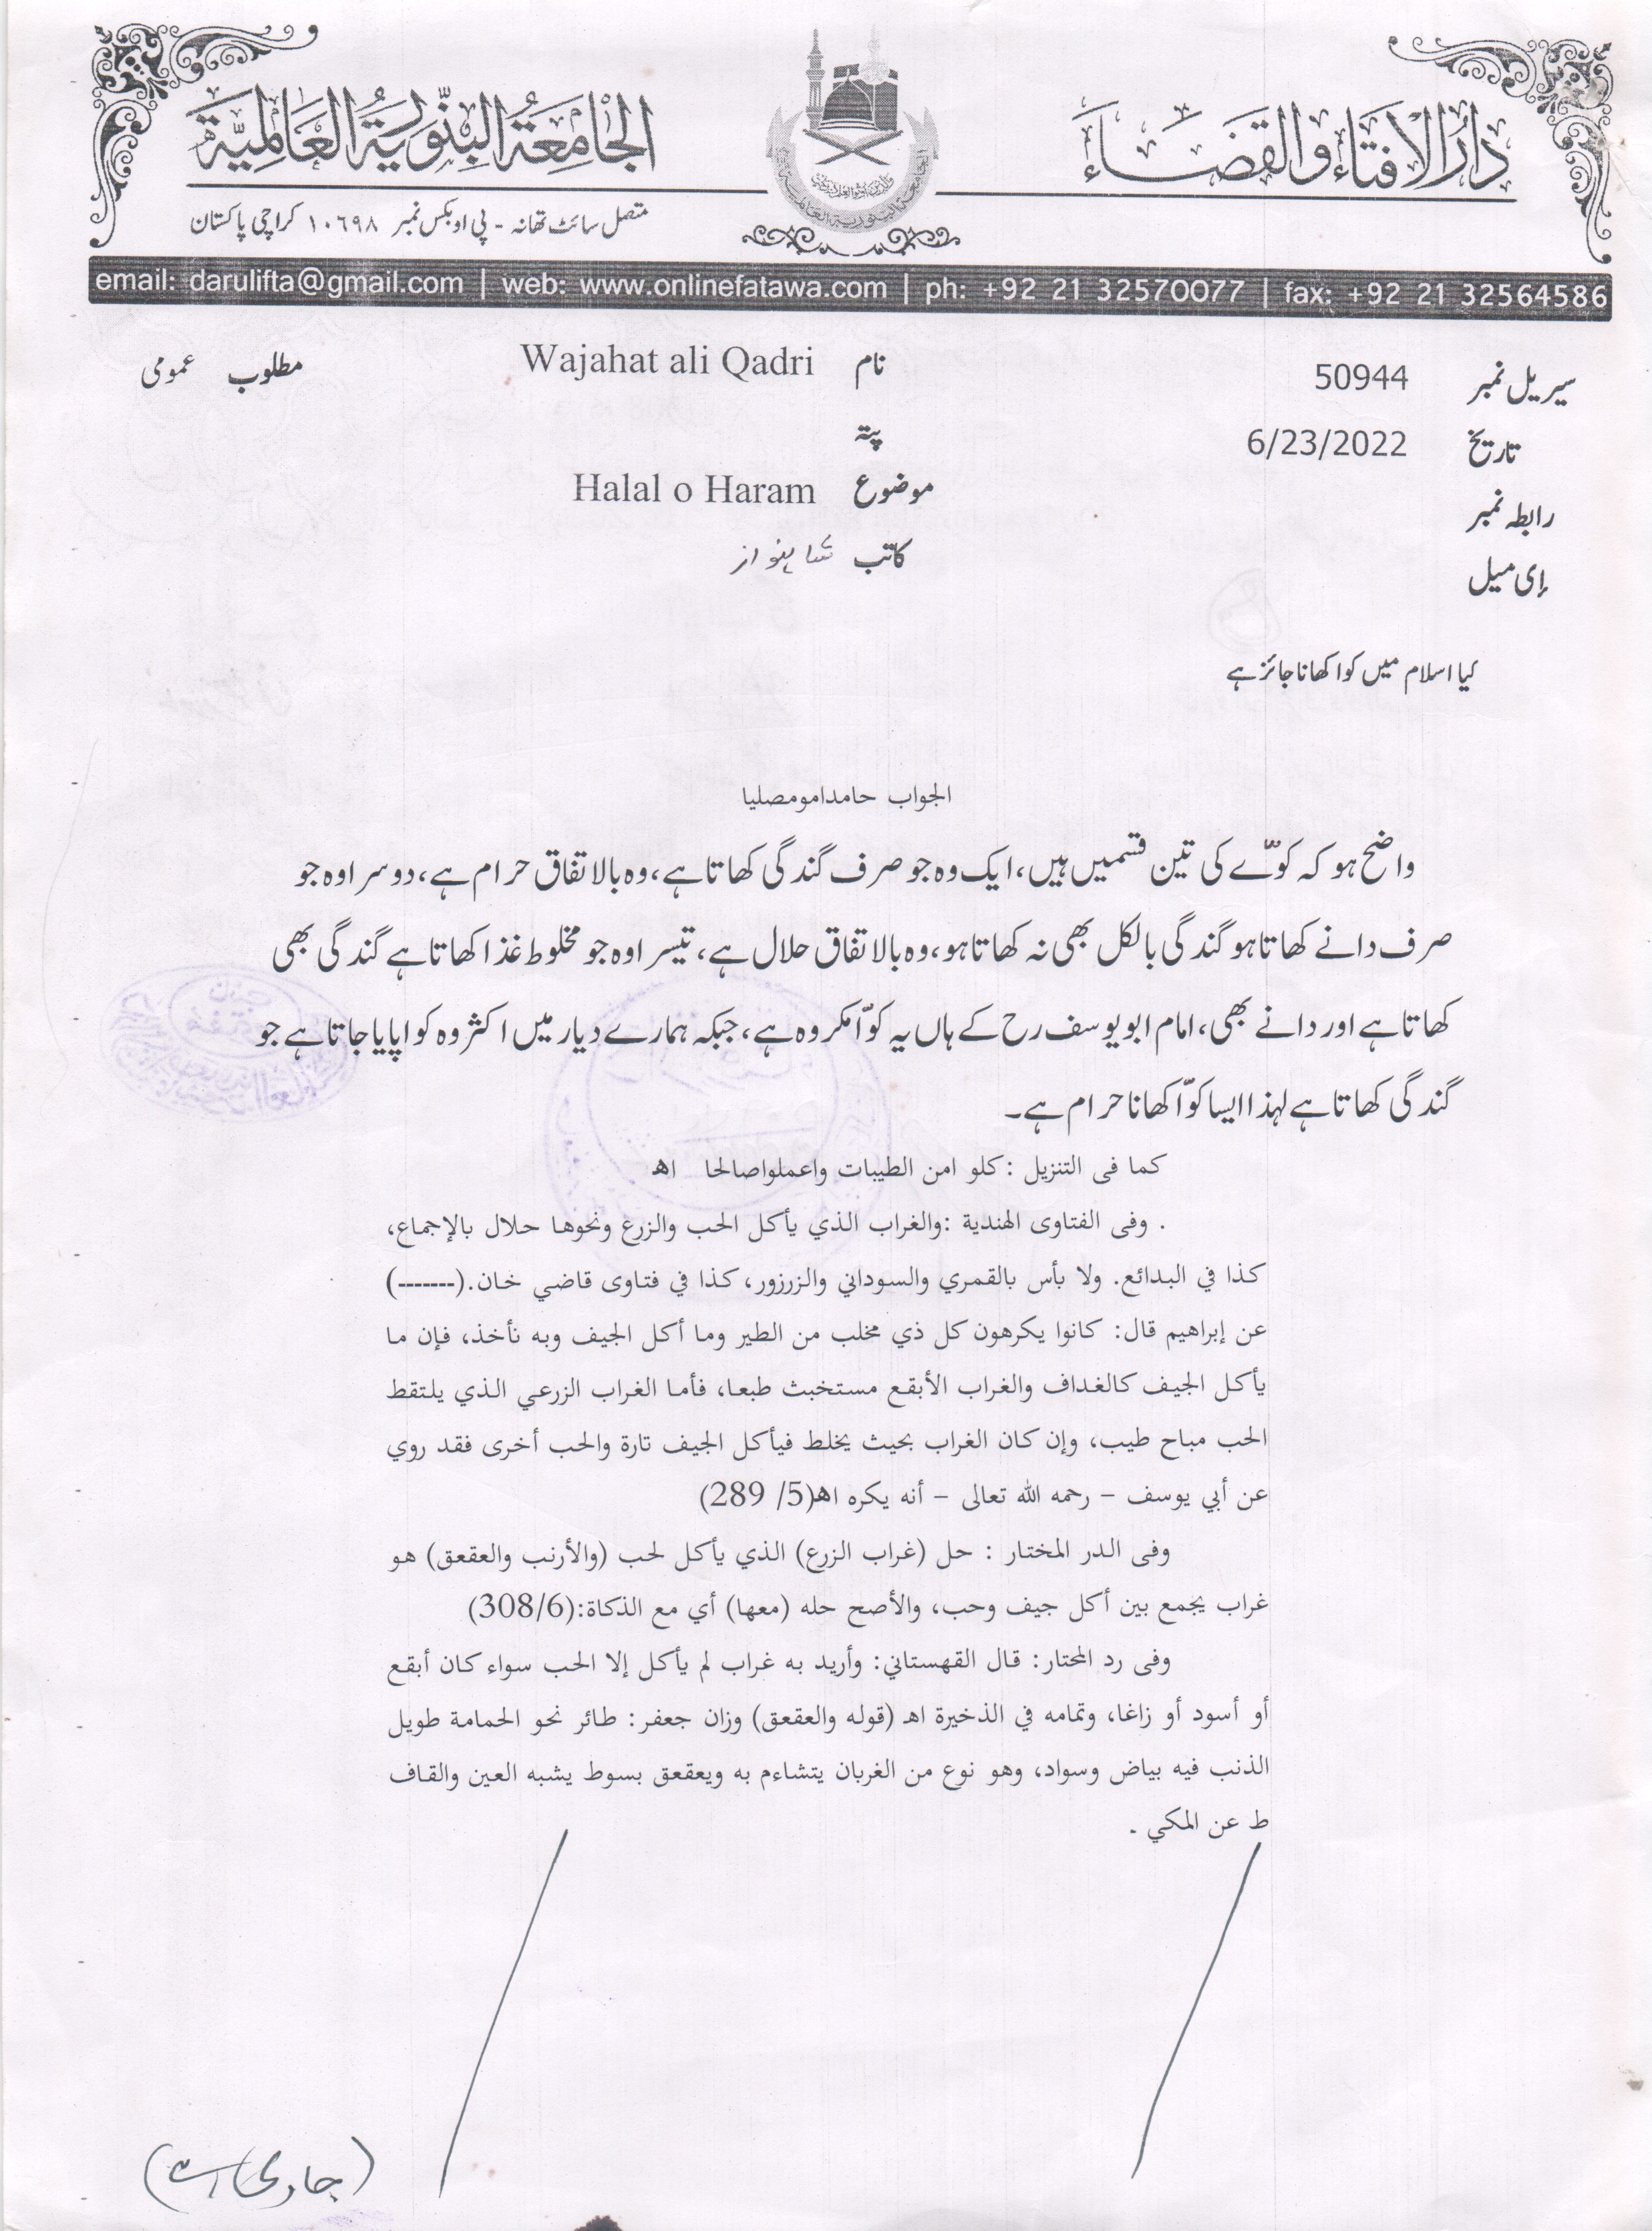 دار الافتاء والقضاء
الجامعة البنورية العالمية
متصل سائٹ تھانہ - پی او بکس نمبر ١٠٦٩٨ کراچی پاکستان
email: darulifta@gmail.com | web: www.onlinefatawa.com | ph: +92 21 32570077 | fax: +92 21 32564586
سیریل نمبر 50944 نام Wajahat ali Qadri مطلوب عمومی
تاریخ 6/23/2022 پتہ
رابطہ نمبر موضوع Halal o Haram
ای میل کاتب شاہنواز
کیا اسلام میں کوا کھانا جائز ہے
الجواب حامدا ومصلیا
واضح ہو کہ کوّے کی تین قسمیں ہیں، ایک وہ جو صرف گندگی کھاتا ہے، وہ بالاتفاق حرام ہے، دوسرا وہ جو
صرف دانے کھاتا ہو گندگی بالکل بھی نہ کھاتا ہو، وہ بالاتفاق حلال ہے، تیسرا وہ جو مخلوط غذا کھاتا ہے گندگی بھی
کھاتا ہے اور دانے بھی، امام ابو یوسف رح کے ہاں یہ کوّا مکروہ ہے، جبکہ ہمارے دیار میں اکثر وہ کوا پایا جاتا ہے جو
گندگی کھاتا ہے لہذا ایسا کوّا کھانا حرام ہے۔
كما فى التنزيل : كلو امن الطيبات واعملواصالحا اھ
. وفى الفتاوى الهندية :والغراب الذي يأكل الحب والزرع ونحوها حلال بالإجماع،
كذا في البدائع. ولا بأس بالقمري والسوداني والزرزور، كذا في فتاوى قاضي خان.(-------)
عن إبراهيم قال: كانوا يكرهون كل ذي مخلب من الطير وما أكل الجيف وبه نأخذ، فإن ما
يأكل الجيف كالغداف والغراب الأبقع مستخبث طبعا، فأما الغراب الزرعي الذي يلتقط
الحب مباح طيب، وإن كان الغراب بحيث يخلط فيأكل الجيف تارة والحب أخرى فقد روي
عن أبي يوسف – رحمه الله تعالى – أنه يكره اھ(5/ 289)
وفى الدر المختار : حل (غراب الزرع) الذي يأكل لحب (والأرنب والعقعق) هو
غراب يجمع بين أكل جيف وحب، والأصح حله (معها) أي مع الذكاة:(308/6)
وفى رد المحتار: قال القهستاني: وأريد به غراب لم يأكل إلا الحب سواء كان أبقع
أو أسود أو زاغا، وتمامه في الذخيرة اهـ (قوله والعقعق) وزان جعفر: طائر نحو الحمامة طويل
الذنب فيه بياض وسواد، وهو نوع من الغربان يتشاءم به ويعقعق بسوط يشبه العين والقاف
ط عن المكي ۔
(جاری ہے)